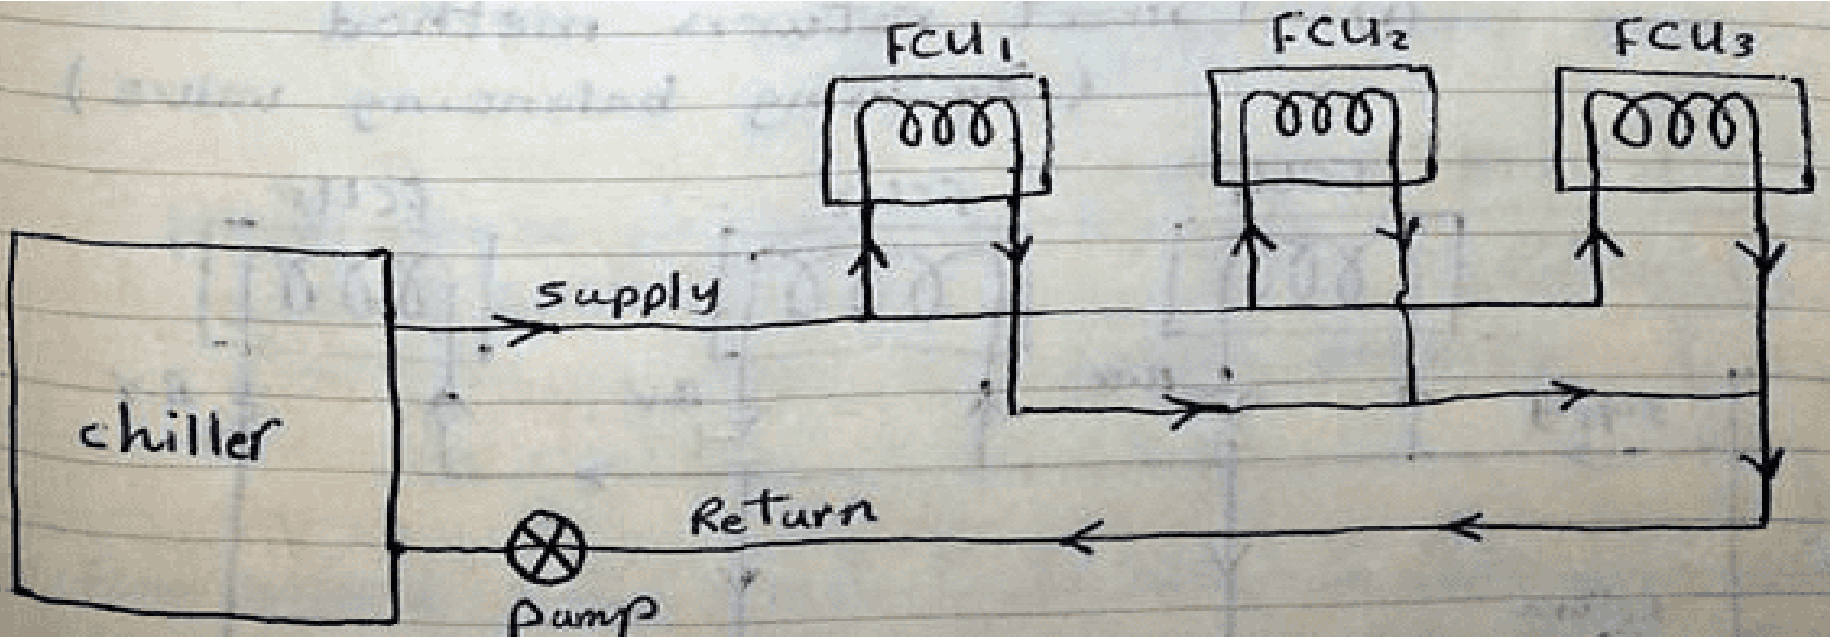 FCU₁ FCU₂ FCU₃
supply
chiller
Return
pump